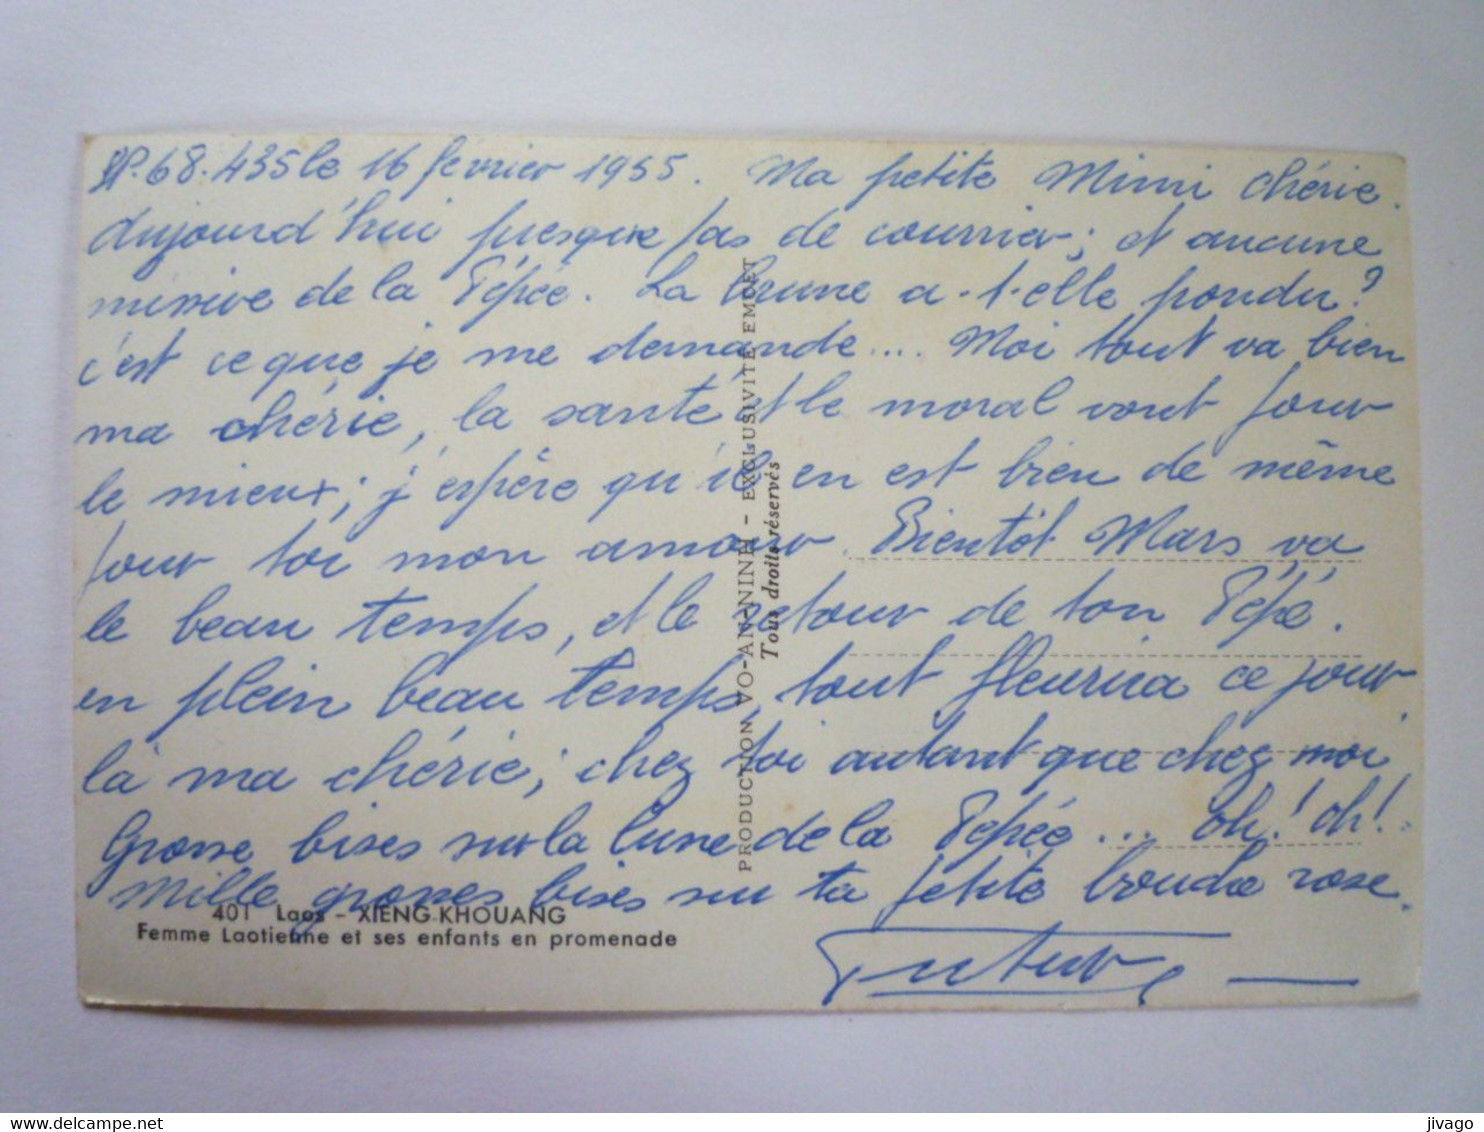 SP. 68.435 le 16 février 1955. Ma petite Mimi chérie.
aujourd'hui presque pas de courrier; et aucune
missive de la Pépée. La brune a-t-elle pondu?
c'est ce que je me demande.... Moi tout va bien
ma chérie, la santé et le moral vont pour
le mieux; j'espère qu'il en est bien de même
pour toi mon amour. Bientôt Mars, va
le beau temps, et le retour de ton Pépé.
en plein beau temps, tout fleurira ce jour
là ma chérie; chez toi autant que chez moi
Grosse bises sur la lune de la Pépée... oh! oh!
Mille grosses bises sur ta petite bouche rose.
PRODUCTION VO-AN-NINH - EXCLUSIVITÉ EMCET
Tous droits réservés
401 Laos - XIENG-KHOUANG
Femme Laotienne et ses enfants en promenade
delcampe.net
jivago